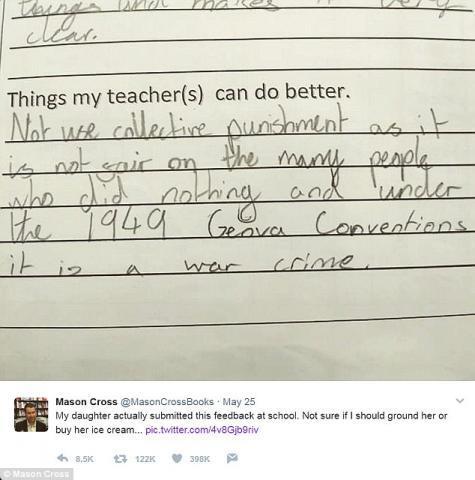 things which makes it very
clear.
Things my teacher(s) can do better.
Not use collective punishment as it
is not fair on the many people
who did nothing and under
the 1949 Geneva Conventions
it is a war crime.
Mason Cross @MasonCrossBooks · May 25
My daughter actually submitted this feedback at school. Not sure if I should ground her or
buy her ice cream... pic.twitter.com/4v8Gjb9riv
8.5K 122K 398K
© Mason Cross